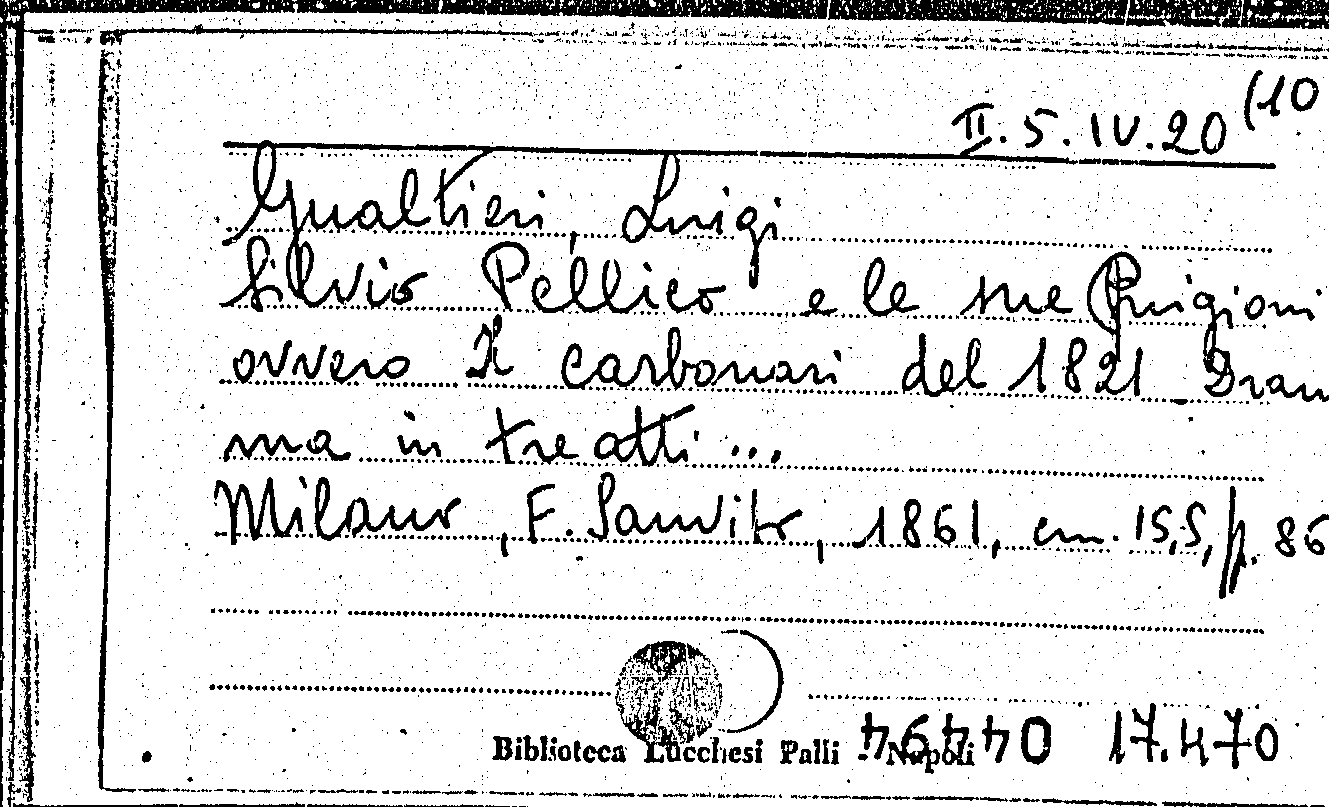 II.5.IV.20 (10
Gualtieri, Luigi
Silvio Pellico e le sue Prigioni
ovvero Il carbonari del 1821 _ Dram
ma in tre atti...
Milano, F. Sanvito, 1861, cm. 15,5, p. 86
Biblioteca Lucchesi Palli - Napoli
17.470